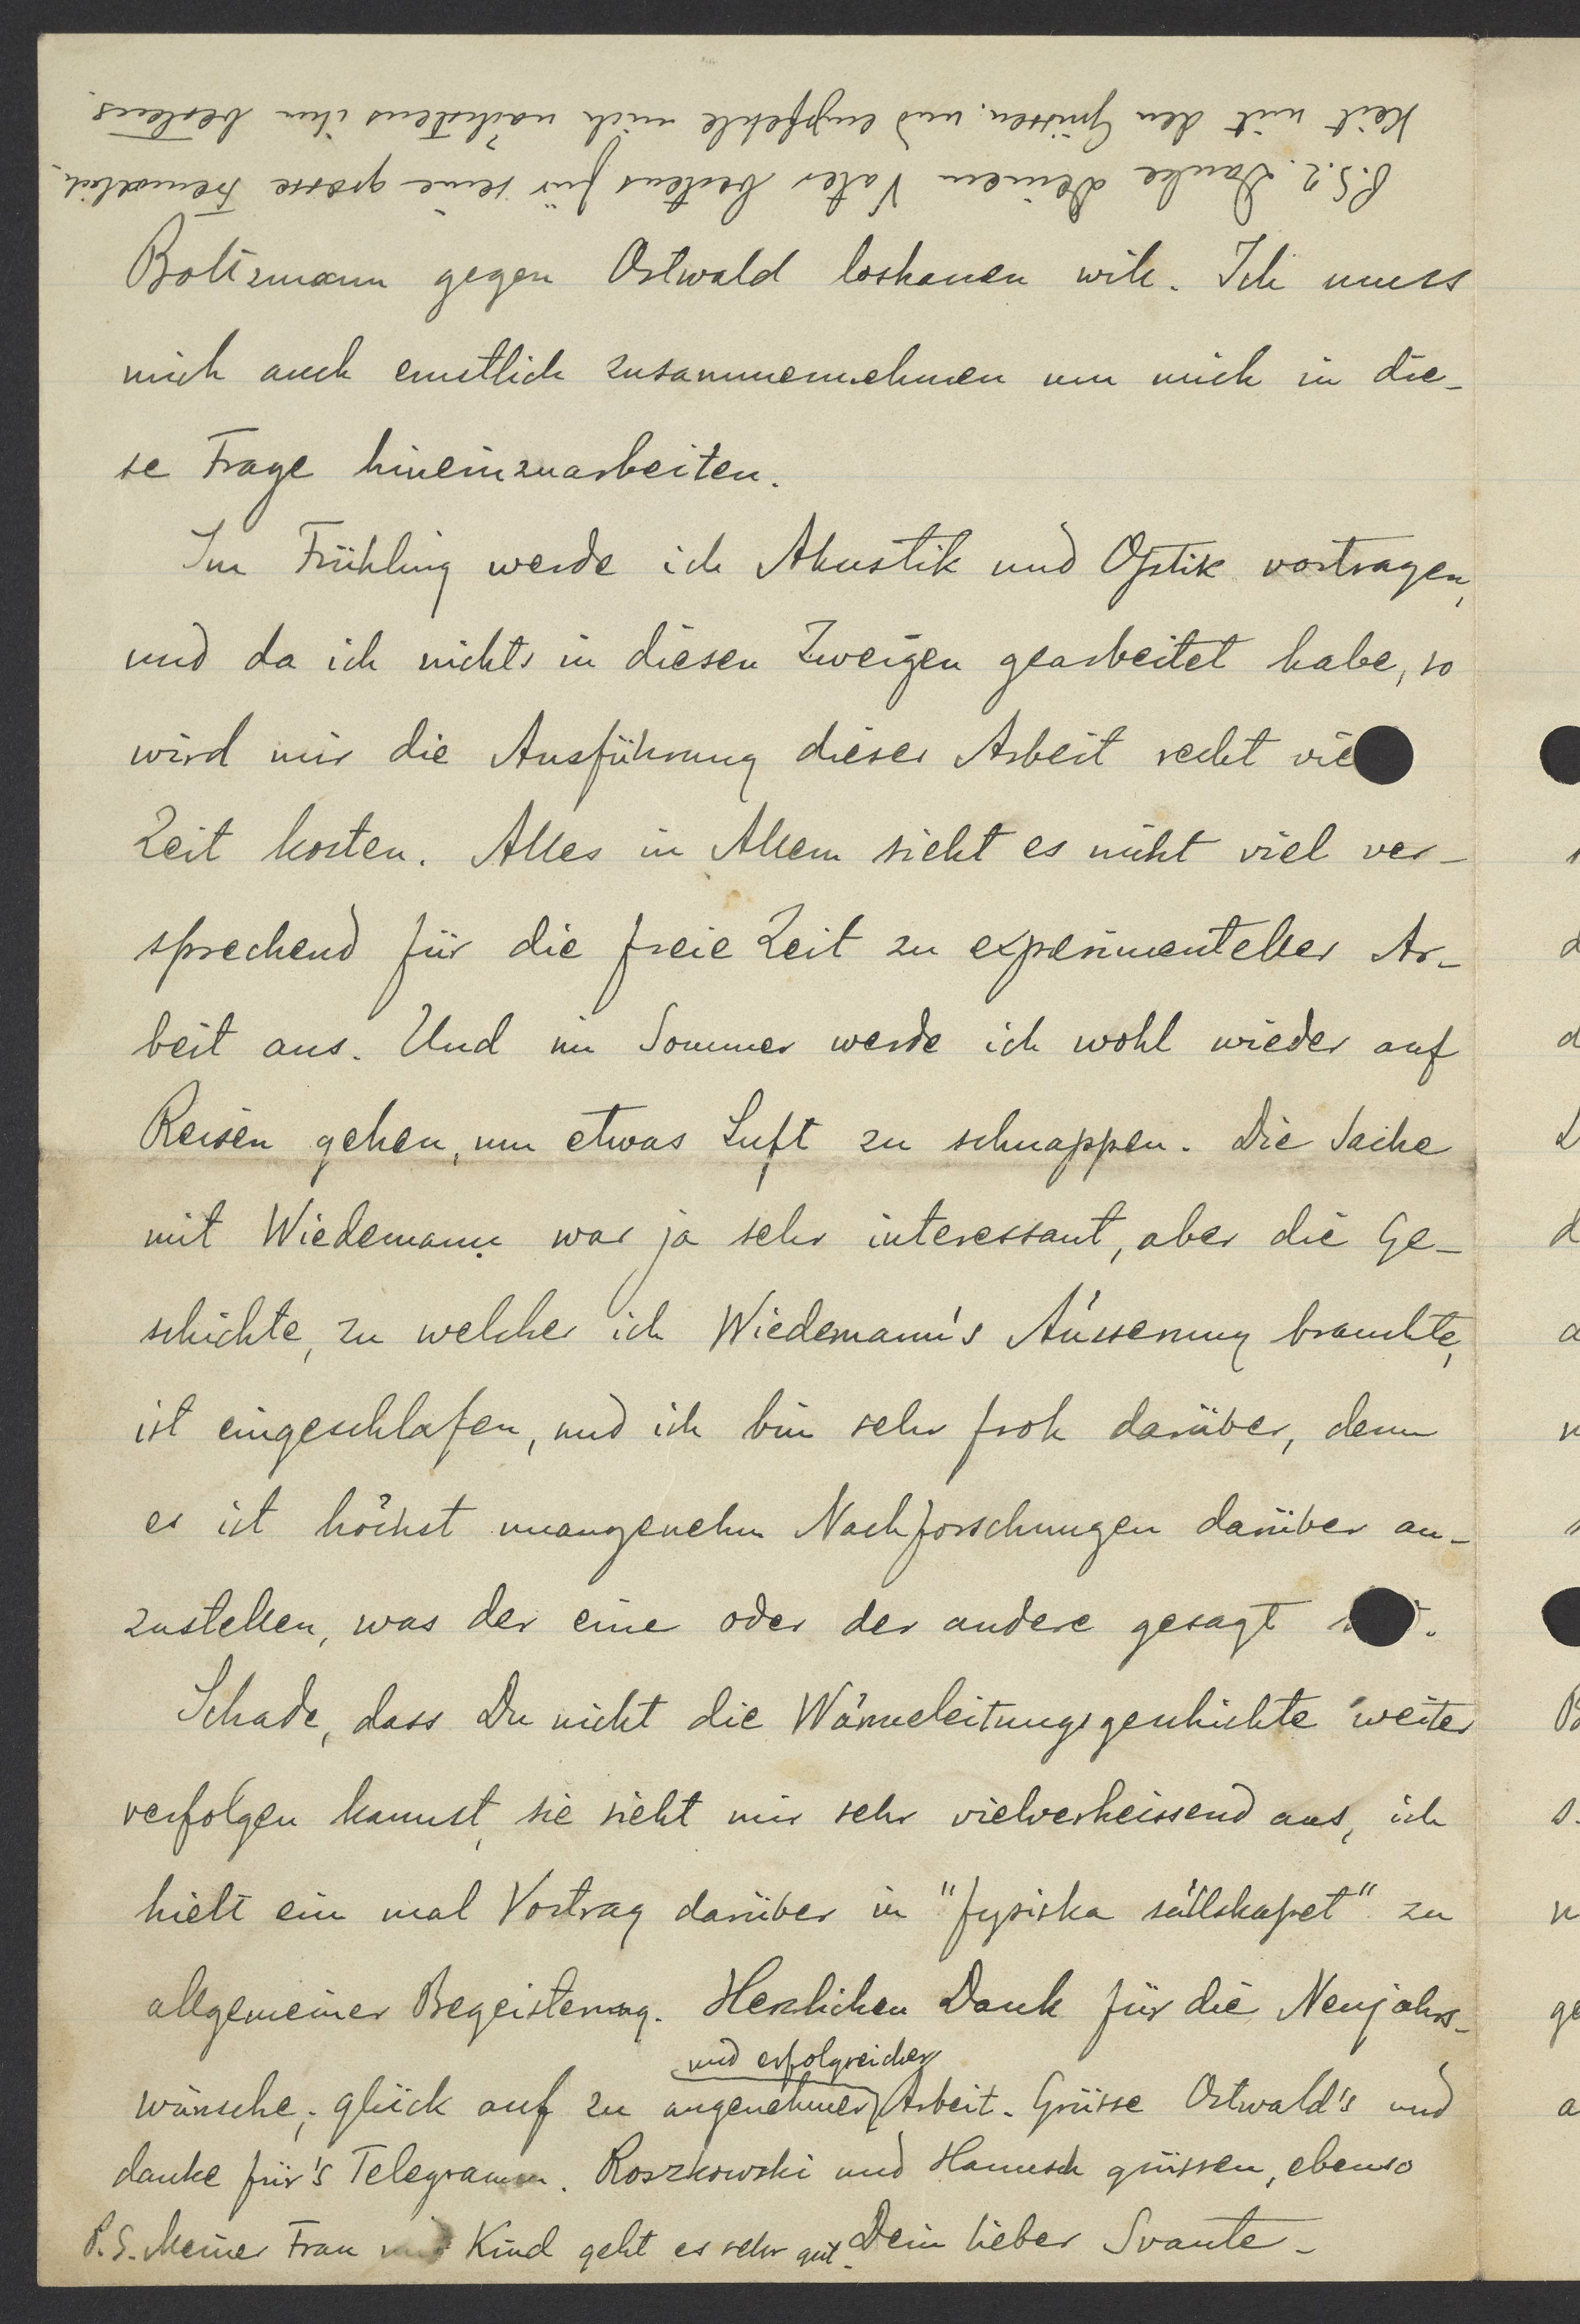 Boltzmann gegen Ostwald loshauen will. Ich muss
mich auch ernstlich zusammennehmen um mich in die-
se Frage hineinzuarbeiten.
Im Frühling werde ich Akustik und Optik vortragen,
und da ich nichts in diesen Zweigen gearbeitet habe, so
wird mir die Ausführung dieser Arbeit recht vie
Zeit kosten. Alles in Allem sieht es nicht viel ver-
sprechend für die freie Zeit zu experimenteller Ar-
beit aus. Und im Sommer werde ich wohl wieder auf
Reisen gehen, um etwas Luft zu schnappen. Die Sache
mit Wiedemann war ja sehr interessant, aber die Ge-
schichte, zu welcher ich Wiedemann's Äusserung brauchte,
ist eingeschlafen, und ich bin sehr froh darüber, denn
es ist höchst unangenehm Nachforschungen darüber an-
zustellen, was der eine oder der andere gesagt
Schade, dass Du nicht die Wärmeleitungsgeschichte weiter
verfolgen kannst, sie sieht mir sehr vielverheissend aus, ich
hielt ein mal Vortrag darüber in "fysiska sällskapet" zu
allgemeiner Begeisterung. Herzlichen Dank für die Neujahrs-
wünsche, glück auf zu angenehmer und erfolgreicher Arbeit. Grüsse Ostwald's und
danke für's Telegramm. Roszkowski und Hamusch grüssen, ebenso
Dein lieber Svante.
P.S. Meiner Frau und Kind geht es sehr gut.
P.S. 2. Danke Deinem Vater bestens für seine grosse Freundlich-
keit mit den Grüssen, und empfehle mich nächstens ihm bestens.